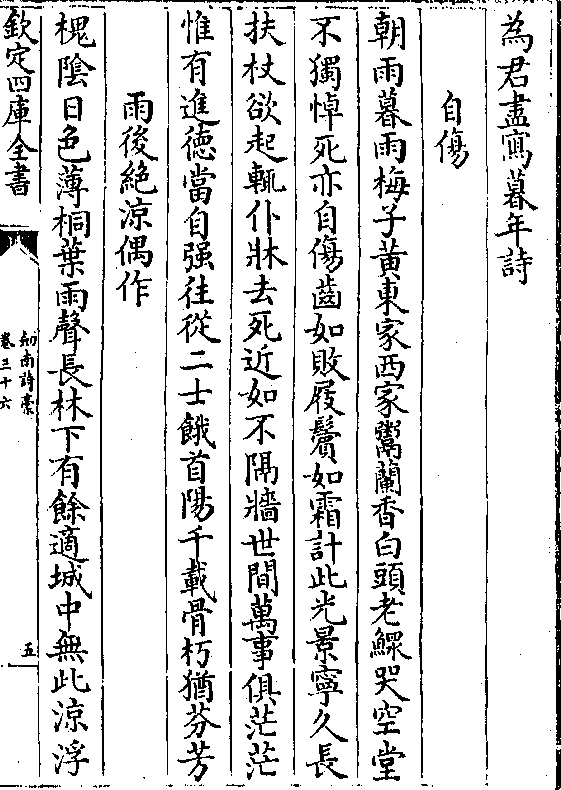 為君盡寫暮年詩
自傷
朝雨暮雨梅子黃東家西家鬻蘭香白頭老鰥哭空堂
不獨悼死亦自傷齒如敗屐鬢如霜計此光景寧久長
扶杖欲起輒仆牀去死近如不隔牆世間萬事俱茫茫
惟有進德當自强往從二士餓首陽千載骨朽猶芬芳
雨後絶涼偶作
槐陰日色薄桐葉雨聲長林下有餘適城中無此涼浮
欽定四庫全書
劍南詩槀
卷三十六
五